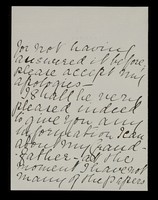 for not having
answered it before,
please accept my
apologies—
I shall be very
pleased indeed
to give you any
information I can
about my grand-
father— at the
moment I have not
many of the papers